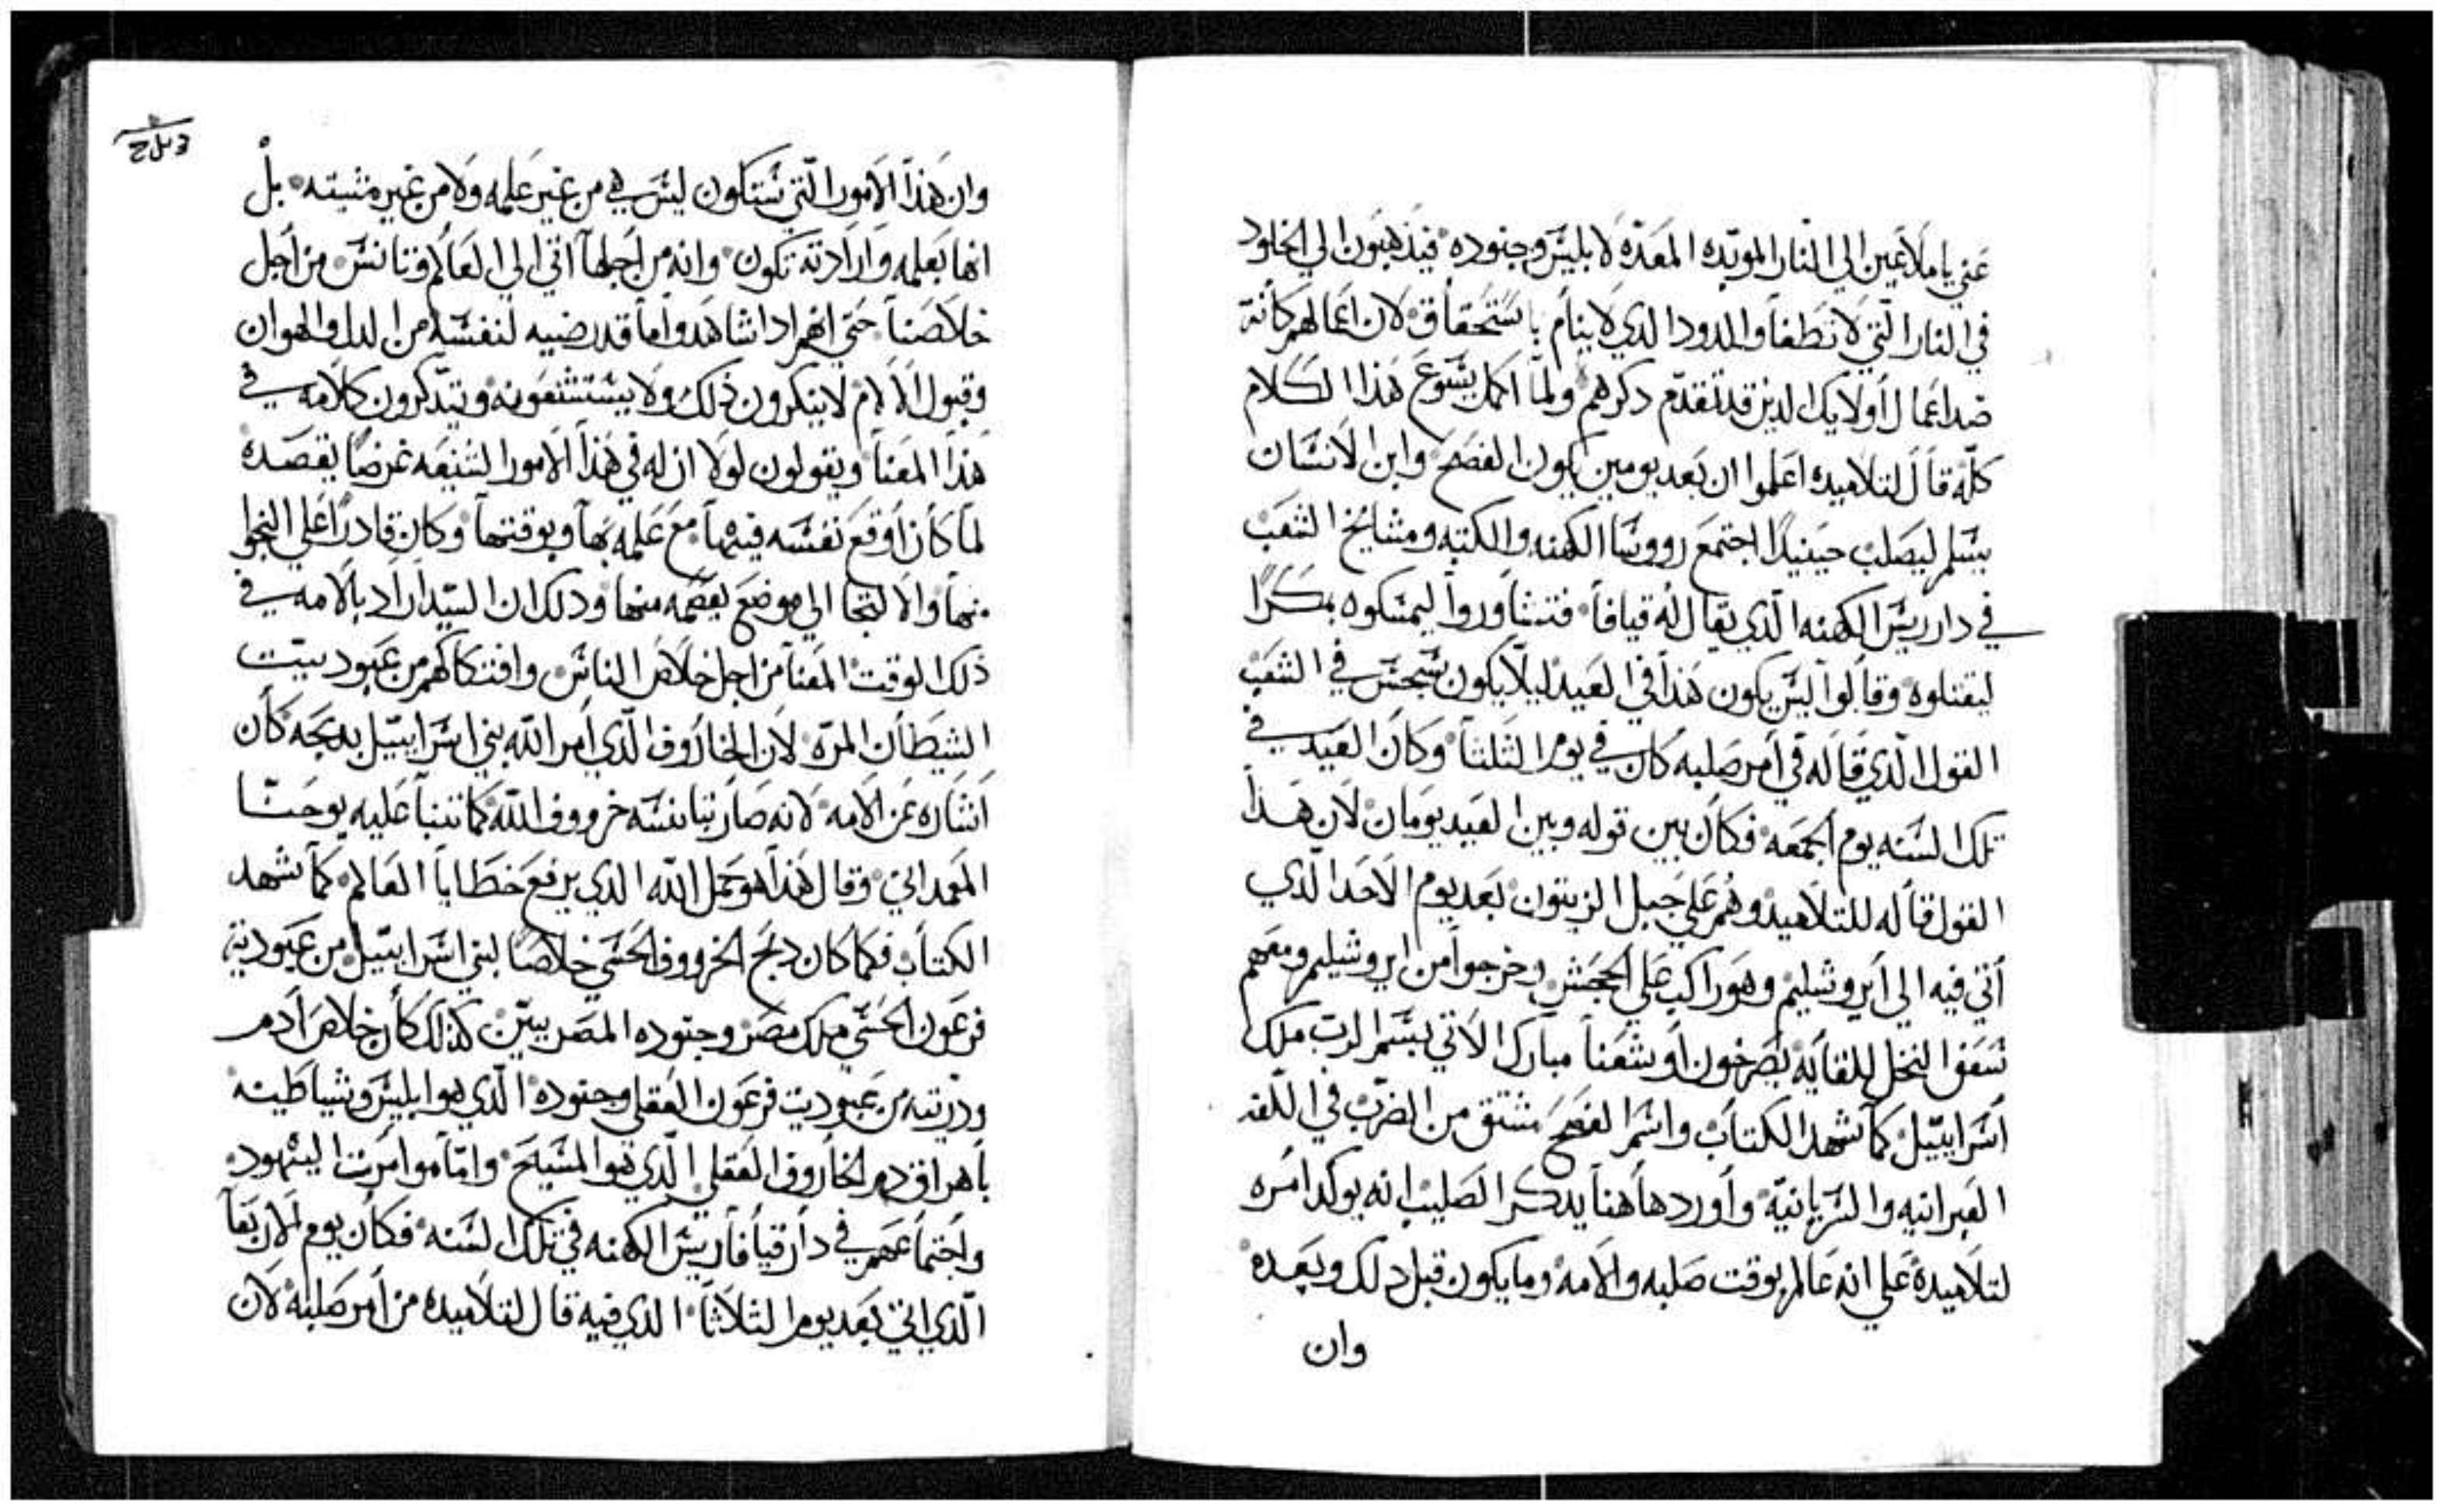 عني يا ملاعين الي النار الموبده المعدّه لابليس وجنوده فيذهبون الي الخلود
في النار التي لا تطفأ والدود الدي لا ينام باستحقاق لان اعمالهم كانة
ضد اعمال اولايك الدين قد تقدم دكرهم ولما اكمل يسوع هذا الكلام
كلّه قال لتلاميده اعلموا ان بعد يومين يكون الفصح وابن الانسان
يسلم ليصلب حينيدًا اجتمع رووسا الكهنه والكتبه ومشايخ الشعب
في دار ريس الكهنه الدي يقال له قيافا فتشاوروا ليمسكوه بمكرًا
ليقتلوه وقالوا ليس يكون هذا في العيد ليلّا يكون سجس في الشعب
القول الدي قاله في امر صلبه كان في يوم الثلثا وكان العيد في
تلك السنه يوم الجمعه فكان بين قوله وبين العيد يومان لان هذا
القول قاله للتلاميد وهم علي جبل الزيتون بعد يوم الاحد الدي
أتي فيه الي ايروشليم وهو راكب علي الجحش وخرجوا من ايروشليم ومعهم
سعف النخل للقايه يصرخون اوشعنا مبارك الاتي بسم الرب ملك
اسراييل كما شهد الكتاب واسم الفصح مشتق من الضرب في اللغه
العبرانيه والسريانيّة وأوردها هنا يدكر الصليب انه يوكد امره
لتلاميده علي انه عالم بوقت صلبه والامه وما يكون قبل دلك وبعده
وان
وان هذا الامور التي ستكون ليس هي من غير علمه ولا من غير مشيته بل
انها بعلمه وارادته تكون وانه من اجلها اتي الي العالم وتانس من اجل
خلاصنا حتي انهم ادا شاهدوا ما قد رضيه لنفسه من الدل والهوان
وقبول الالام لا ينكرون ذلك ولا يستشنعونه ويتدكرون كلامه في
هذا المعنا ويقولون لولا ان له في هذا الامور الشنيعه غرضًا يقصده
لما كان اوقع نفسه فيها مع علمه بها وبوقتها وكان قادرًا علي النجا
منها والالتجا الي موضع يعصمه منها ودلك ان السيد اراد بالامه في
ذلك الوقت المعنا من اجل خلاص الناس وافتكاكهم من عبوديت
الشيطان المرّه لان الخاروف الّدي امر اللّه بني اسراييل بدبحه كان
اشاره عن الامه لانه صار بتانسه خرووف اللّه كما تنبأ عليه يوحنّا
المعمداني وقال هذا هو حمل اللّه الدي يرفع خطايا العالم كما شهد
الكتاب فكما كان دبح الخرووف الحسّي خلاصًا لبني اسراييل من عبودية
فرعون الحسّي ملك مصر وجنوده المصريين كذلك كان خلاص أدم
ودريته من عبوديت فرعون العقلي وجنوده الّدي هو ابليس وشياطينه
باهراق دم الخاروف العقلي الّدي هو المسيح وامّا موامرت اليهود
واجتماعهم في دار قيافا ريس الكهنه في تلك السنه فكان يوم الاربعا
الّدي اتي بعد يوم الثلاثا الدي فيه قال لتلاميده من امر صلبه لان